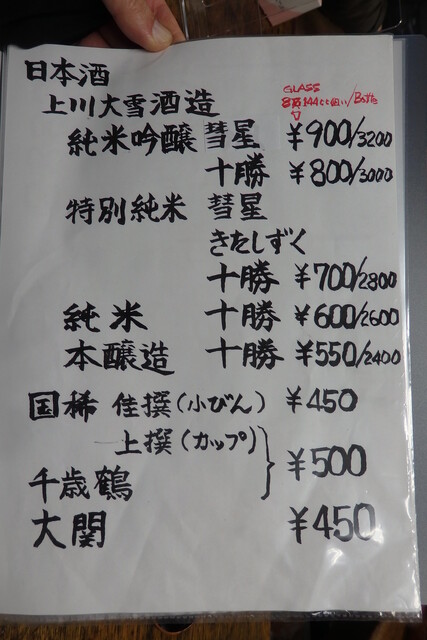 日本酒
上川大雪酒造
GLASS
純米吟醸 彗星 ¥900/3200
十勝 ¥800/3000
特別純米 彗星
きたしずく
十勝 ¥700/2800
純米 十勝 ¥600/2600
本醸造 十勝 ¥550/2400
国稀 佳撰(小びん) ¥450
上撰(カップ)
¥500
千歳鶴
大関 ¥450